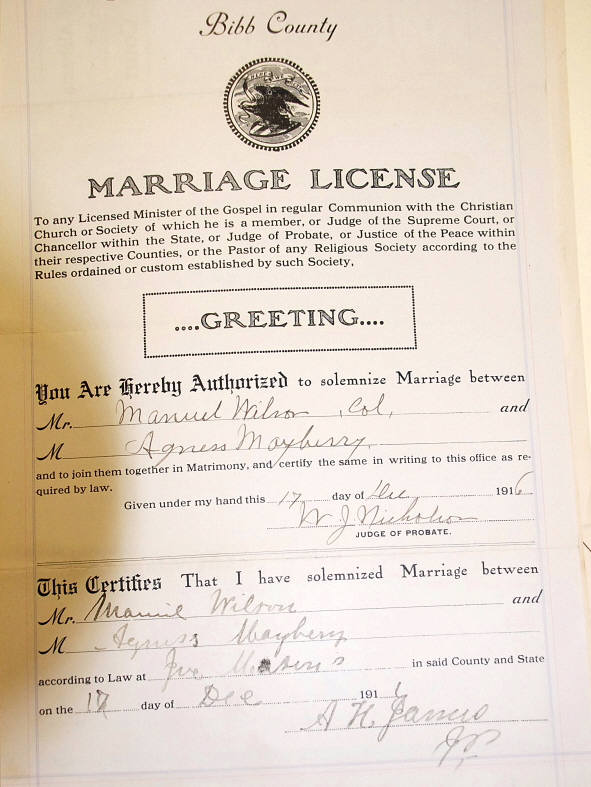 Bibb County
MARRIAGE LICENSE
To any Licensed Minister of the Gospel in regular Communion with the Christian
Church or Society of which he is a member, or Judge of the Supreme Court, or
Chancellor within the State, or Judge of Probate, or Justice of the Peace within
their respective Counties, or the Pastor of any Religious Society according to the
Rules ordained or custom established by such Society,
....GREETING....
You Are Hereby Authorized to solemnize Marriage between
Mr. Manuel Wilson, Col, and
M Agness Mayberry
and to join them together in Matrimony, and certify the same in writing to this office as re-
quired by law.
Given under my hand this 17 day of Dec 1916
W J Nicholson
JUDGE OF PROBATE.
This Certifies That I have solemnized Marriage between
Mr. Wilson and
M Agness Mayberry
according to Law at in said County and State
on the 17 day of Dec 1916
A H James
JP